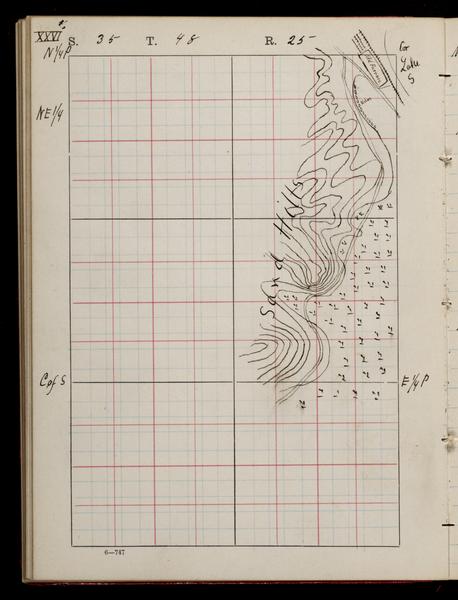 XXVI
S. 35 T. 48 R. 25
N 1/4 P
Cor
Lake
S
NE 1/4
Sand Hills
C of S
E 1/4 P
6—747